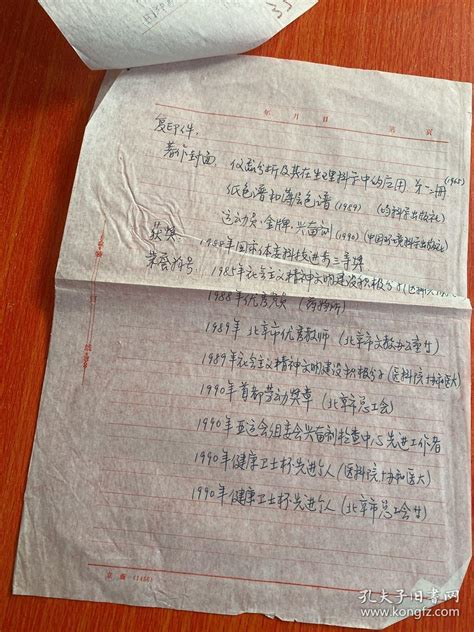 年 月 日 第 页
复印件:
著作封面: 仪器分析及其在生理科学中的应用 第一、二册 (1985)
纸色谱和薄层色谱 (1989) (科学出版社)
运动员、金牌、兴奋剂 (1990) (中国环境科学出版社)
获奖 1988年国家体委科技进步三等奖
荣誉称号 1985年社会主义精神文明建设积极分子(医科
1988年优秀党员 (药物所)
1989年 北京市优秀教师 (北京市文教办公室等)
1989年社会主义精神文明建设积极分子(医科院、协和医大)
1990年首都劳动奖章 (北京市总工会)
1990年亚运会组委会兴奋剂检查中心先进工作者
1990年健康卫士杯先进个人 (医科院、协和医大)
1990年健康卫士杯先进个人 (北京市总工会等)
孔夫子旧书网
www.kongfz.com